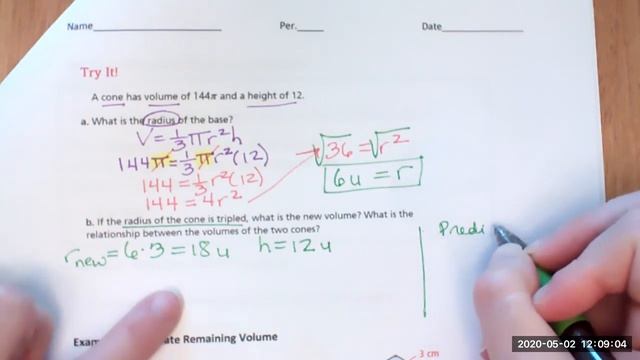 Name Per. Date
Try It!
A cone has volume of 144π and a height of 12.
a. What is the radius of the base?
V = 1/3 πr²h
144π = 1/3 πr²(12)
144 = 1/3 r²(12)
144 = 4r²
→ √36 = √r²
6u = r
b. If the radius of the cone is tripled, what is the new volume? What is the
relationship between the volumes of the two cones?
r new = 6·3 = 18u h = 12u
Predi
Exam ate Remaining Volume
3 cm
2020-05-02 12:09:04